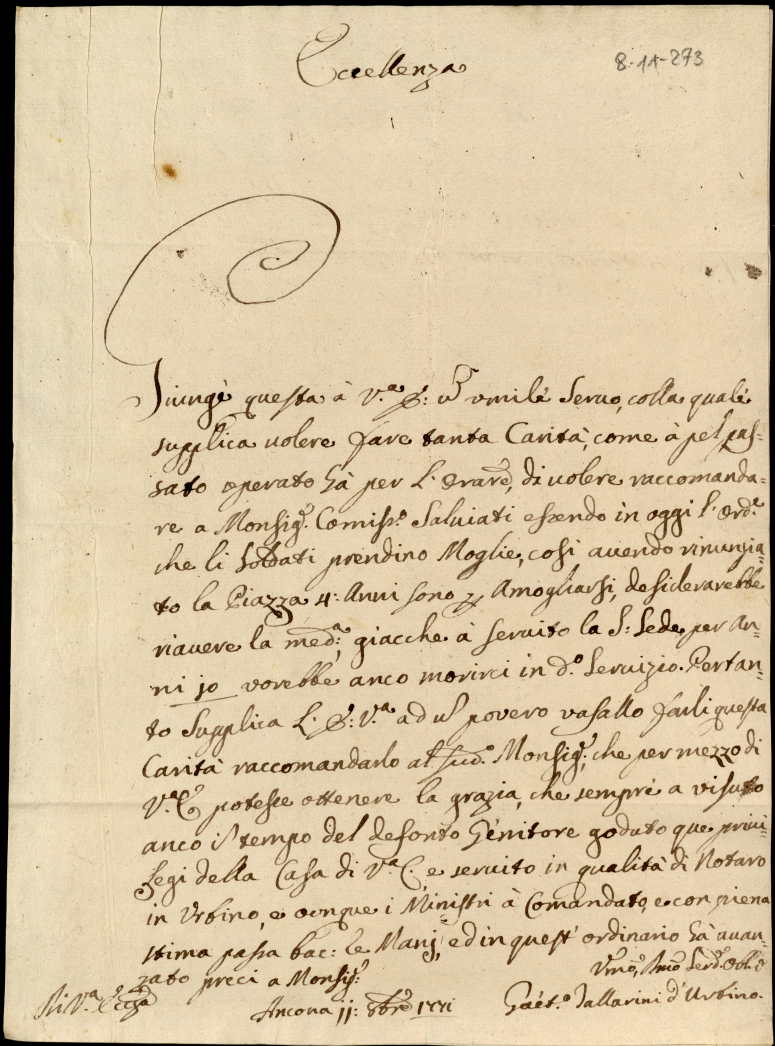 Eccellenza
8-11-273
Giunge questa à V.ª E: un umile Seruo, colla quale
supplica uolere fare tanta Carità, come à pel pas=
sato operato hà per L'orare, di uolere raccomanda=
re a Monsig.r Comiss.o Saluiati essendo in oggi l'ord.e
che li soldati prendino Moglie, così auendo rinunzia=
to la Piazza 4: Anni sono p Amogliarsi, desiderarebbe
riauere la med.a, giacche à seruito la S: Sede per An=
ni 10 vorebbe anco morirci in d.o Seruizio. Pertan=
to Supplica L: E: V.a ad un povero vasallo farli questa
Carità raccomandarlo al sud.o Monsig.r, che per mezzo di
V.a E potesse ottenere la grazia, che sempre a visuto
anco il tempo del defonto Genitore goduto que priui=
legi della Casa di V.a E, e seruito in qualità di Notaro
in Urbino, e ounque i Ministri à Comandato, e con piena
stima passa bac: le Manj, ed in quest' ordinario hà auan=
zato preci a Monsig.r
Di V.a Ecc.za
Ancona 11: 8bre 1771
Umo, Dmo Serd. Obb.o
Gaet.o Tallarini d'Urbino.